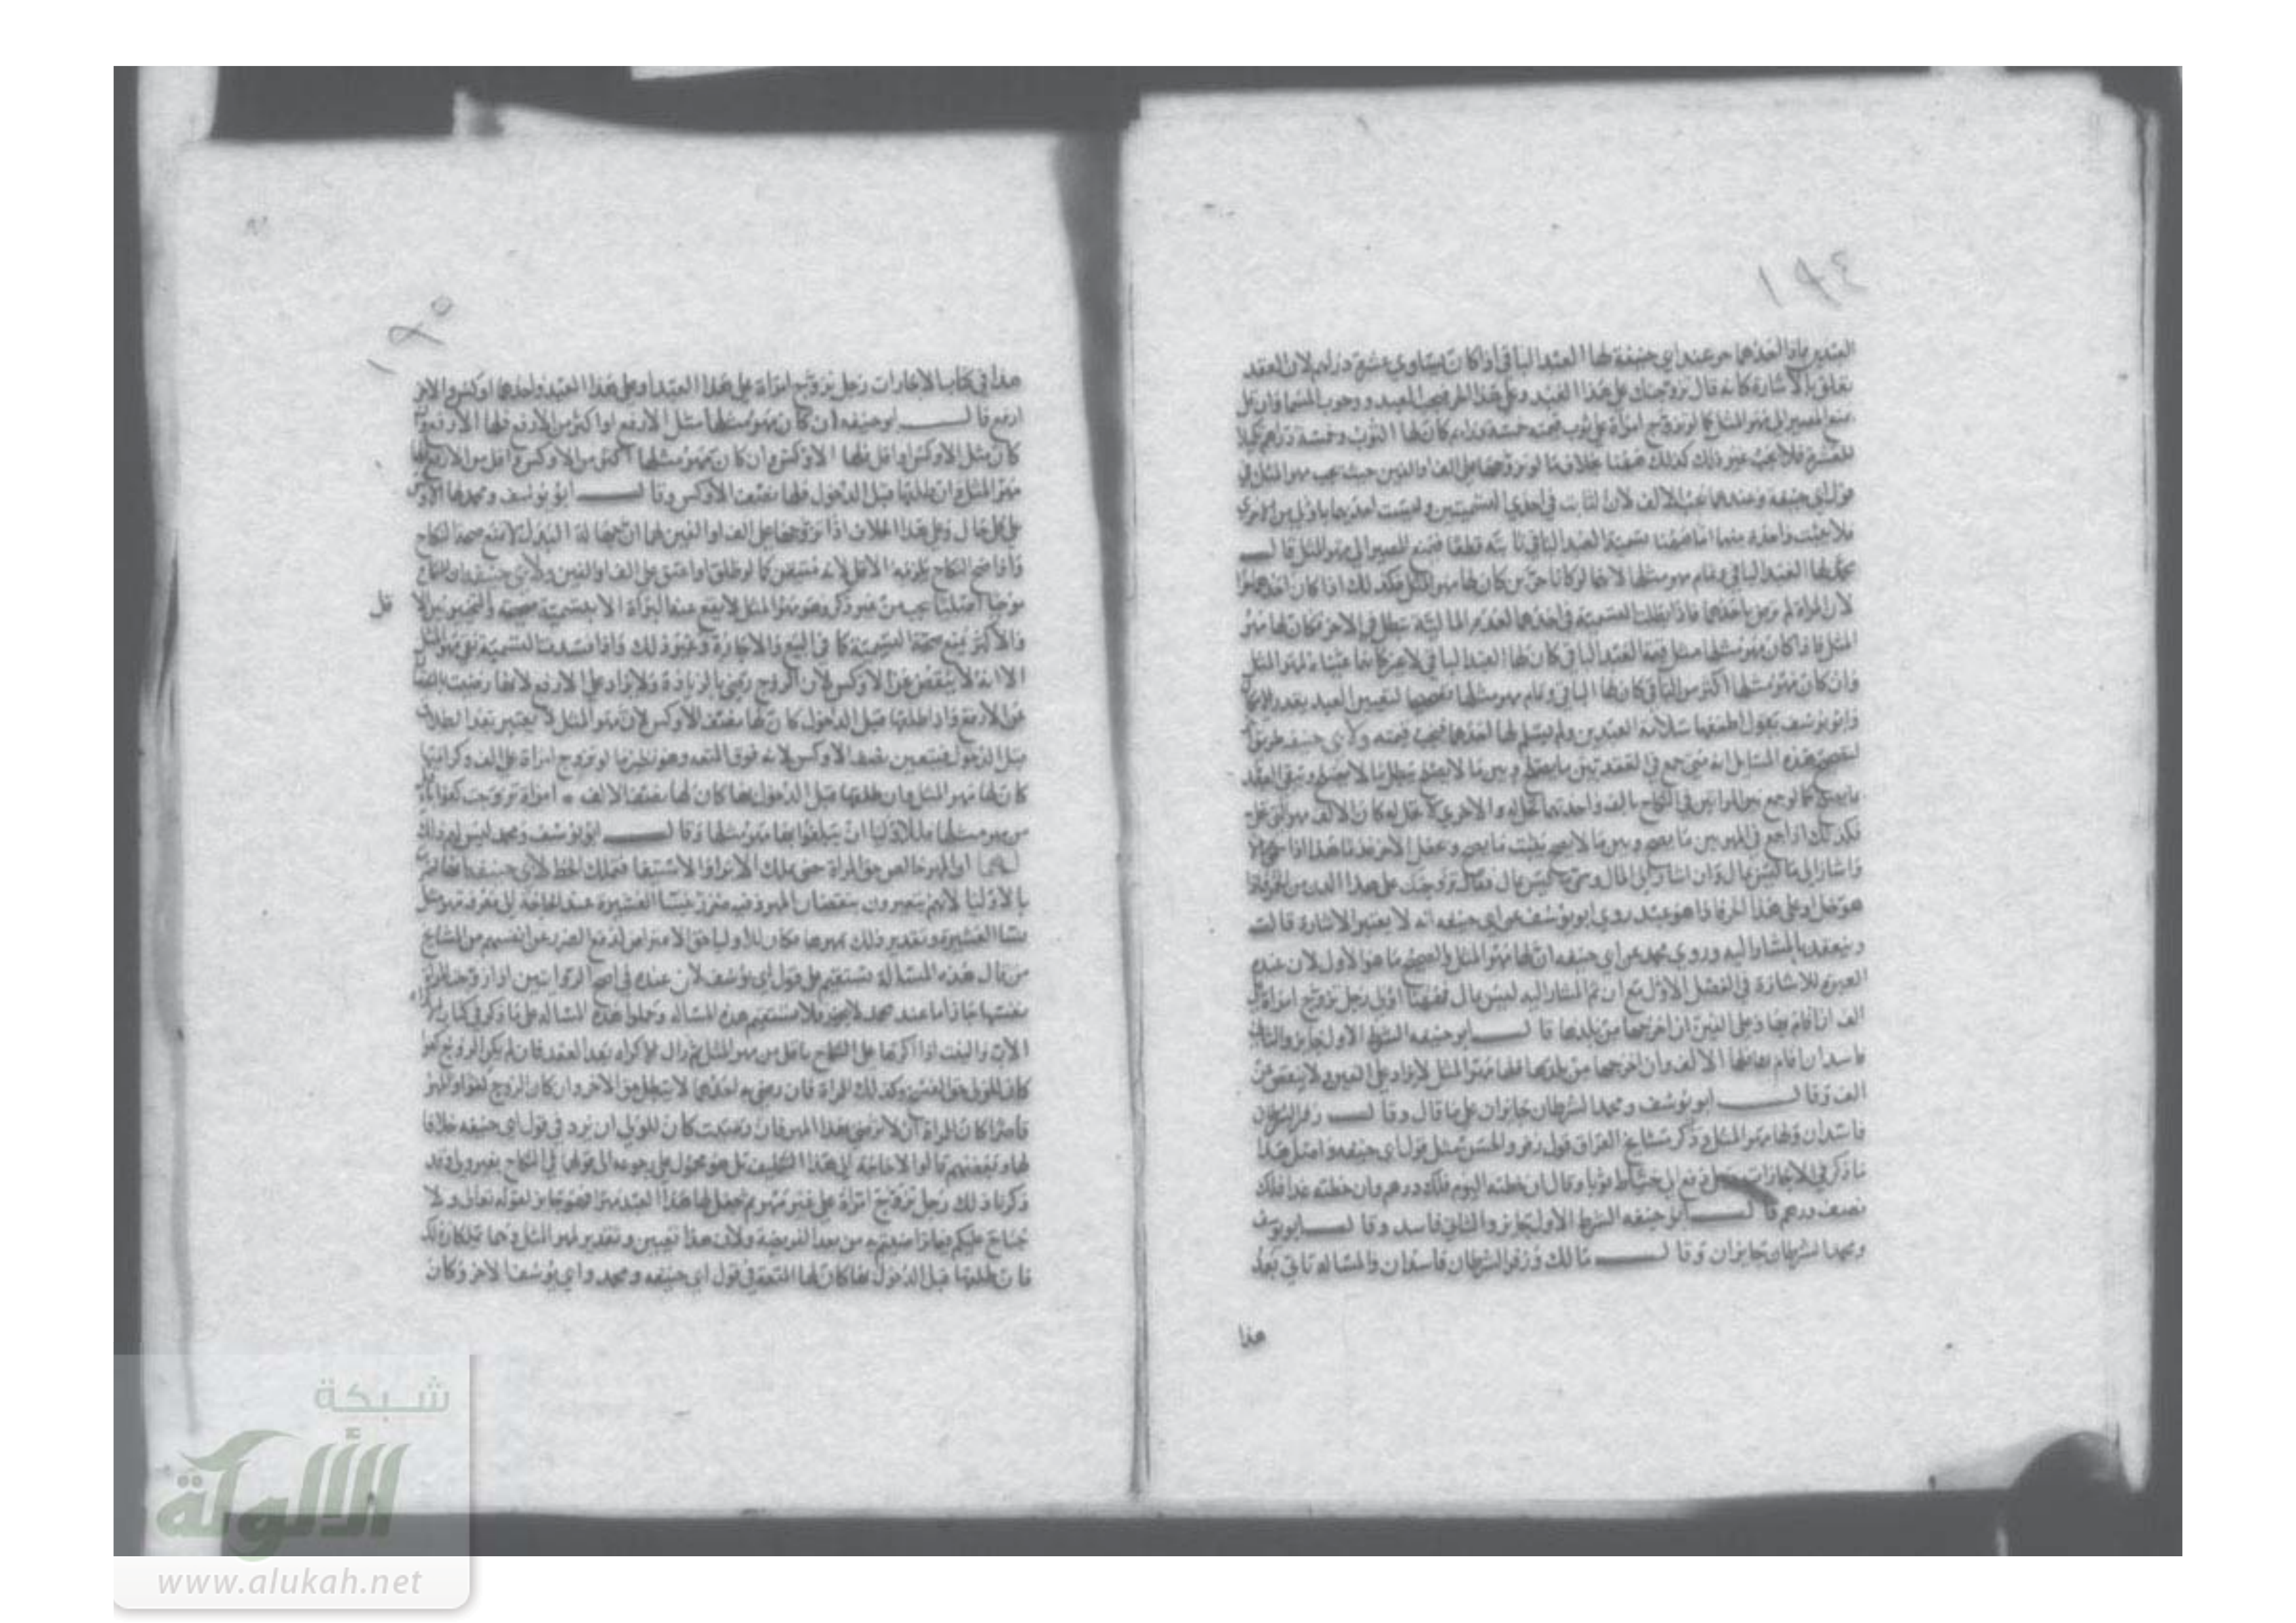 ١٩٤
العبدين فاذا احدهما حر عند ابي حنيفة لها العبد الباقي اذا كان يساوي عشرة دراهم لان العقد
تعلق بالاشارة كانه قال تزوجتك على هذا العبد وعلى هذا الحر ووجوب المسمى وان قل
يمنع المصير الى مهر المثل كما لو تزوج امراة على ثوب قيمته خمسة دراهم كان لها الثوب وخمسة دراهم تكميلا
للعشرة فلا يجب غير ذلك كذلك ههنا بخلاف ما لو تزوجها على الف او الفين حيث يجب مهر المثل في
قول ابي حنيفة وعندهما يجب الالف لان الثابت في احدي التسميتين وليست احديهما باولى من الاخرى
فلا يثبت واحدة منهما اما ههنا تسمية العبد الباقي ثابتة قطعا فيمنع المصير الى مهر المثل قال
محمد لها العبد الباقي وتمام مهر مثلها لانهما لو كانا حرين كان لها مهر المثل فكذلك اذا كان احدهما حرا
لان المراة لم ترض باحدهما فاذا بطلت التسمية في احدهما لعدم المالية تبطل في الاخر فكان لها مهر
المثل فاذا كان مهر مثلها مثل قيمة العبد الباقي كان لها العبد الباقي
وان كان مهر مثلها اكثر من الباقي كان لها الباقي وتمام مهر مثلها
وابو يوسف يقول اطمعها سلامة العبدين ولم يسلم لها احدهما فيجب قيمته ولابي حنيفة طريق
هذه المسايل انه متى جمع في العقد بين ما يصلح وبين ما لا يصلح يبطل ما لا يصلح ويبقى العقد
كما لو جمع بين امراتين في النكاح بالف واحدتهما تحل له والاخرى لا تحل له كان الالف مهر التي تحل
فكذلك اذا جمع في المهر بين ما يصح وبين ما لا يصح يثبت ما يصح هذا اذا
واشار الى ما ليس بمال وان اشار الى المال وسمى ما ليس بمال فقال تزوجتك على هذا الدن من الخمر فاذا
هو خل او على هذا الحر فاذا هو عبد روي ابو يوسف عن ابي حنيفة انه لا يعتبر الاشارة قالت
وينعقد بالمشار اليه وروي محمد عن ابي حنيفة ان لها مهر المثل والصحيح ما هو الاول لان عنده
العبرة للاشارة في الفصل الاول مع ان ثم المشار اليه ليس بمال فههنا اولى رجل تزوج امراة على
الف ان اقام بها وعلى الفين ان اخرجها من بلدها قال ابو حنيفة الشرط الاول جايز والثاني
فاسد ان اقام بها فلها الالف وان اخرجها من بلدها فلها مهر المثل لا يزاد على الفين ولا ينقص من
الف وقال ابو يوسف ومحمد الشرطان جايزان على ما قال وقال زفر الشرطان
فاسدان ولها مهر المثل وذكر مشايخ العراق قول زفر والحسن مثل قول ابي حنيفة واصل هذا
ما ذكر في الاجارات رجل دفع الى خياط ثوبا وقال ان خطته اليوم فلك درهم وان خطته غدا فلك
نصف درهم قال ابو حنيفة الشرط الاول جايز والثاني فاسد وقال ابو يوسف
ومحمد الشرطان جايزان وقال مالك وزفر الشرطان فاسدان والمسالة تاتي بعد
هذا
١٩٥
هذا في كتاب الاجارات رجل تزوج امراة على هذا العبد او على هذا العبد واحدهما اوكس والاخر
ارفع قال ابو حنيفة ان كان مهر مثلها مثل الارفع او اكثر من الارفع فلها الارفع وان
كان مثل الاوكس او اقل فلها الاوكس وان كان مهر مثلها اكثر من الاوكس واقل من الارفع فلها
مهر المثل وان طلقها قبل الدخول فلها نصف الاوكس وقال ابو يوسف ومحمد لها الاوكس
على كل حال وعلى هذا الخلاف اذا تزوجها على الف او الفين لهما ان جهالة البدل لا تمنع صحة النكاح
واذا صح النكاح يلزمه الاقل لانه متيقن كما لو طلق او اعتق على الف او الفين ولابي حنيفة ان النكاح
موجبا اصليا يجب من غير ذكر وهو مهر المثل لا يقع عنه البراة الا بتسمية صحيحة والتخيير بين الاقل
والاكثر يمنع صحة التسمية كما في البيع والاجارة وغير ذلك واذا فسدت التسمية بقي مهر المثل
الا انه لا ينقص عن الاوكس لان الزوج رضي بالزيادة ولا يزاد على الارفع لانها رضيت بالنقصان
عن الارفع واذا طلقها قبل الدخول كان لها نصف الاوكس لان مهر المثل لا يعتبر بعد الطلاق
قبل الدخول فيتعين نصف الاوكس لانه فوق المتعة وهو نظير ما لو تزوج امراة على الف وكرامتها
كان لها مهر المثل وان طلقها قبل الدخول بها كان لها نصف الالف امراة تزوجت كفوا باقل
من مهر مثلها فللاوليا ان يبلغوا بها مهر مثلها وقال ابو يوسف ومحمد ليس لهم ذلك
لهما ان المهر خالص حق المراة حتى يملك الابراء والاستيفا فتملك الحط لابي حنيفة انها اضرت
بالاوليا لانهم يتعيرون بنقصان المهر وفيه ضرر بنسا العشيرة عند الحاجة الى معرفة مهر مثل
نسا العشيرة وتقدير ذلك بمهرها فكان للاوليا حق الاعتراض لدفع الضرر عن انفسهم من المشايخ
من قال هذه المسالة تستقيم على قول ابي يوسف لان عنده في اصح الروايتين
نفسها جاز اما عند محمد لا يجوز فلا تستقيم هذه المسالة وحملوا هذه المسالة على ما ذكر في كتاب الاكراه
الاب والبنت اذا اكرها على النكاح باقل من مهر المثل ثم زال الاكراه بعد العقد فان لم يكن الزوج كفوا
كان للمولى حق الفسخ وكذلك المراة فان رضي به احدهما لا يبطل حق الاخر وان كان الزوج كفوا والمهر
قاصرا كان للمراة ان لا ترضى بهذا المهر فان رضيت كان للولي ان يرد في قول ابي حنيفة خلافا
لهما وبعضهم قالوا لا حاجة الى هذا التكليف بل هو محمول على رجوعه الى قولهما في النكاح بغير ولي وقد
ذكرنا ذلك رجل تزوج امراة على غير مهر ثم جعل لها هذا العبد مهرا فهو جايز لقوله تعالى ولا
جناح عليكم فيما تراضيتم به من بعد الفريضة ولان هذا تعيين وتقدير لمهر المثل
فان طلقها قبل الدخول بها كان لها المتعة في قول ابي حنيفة ومحمد وابي يوسف الاخر وكان
شبكة
الألوكة
www.alukah.net